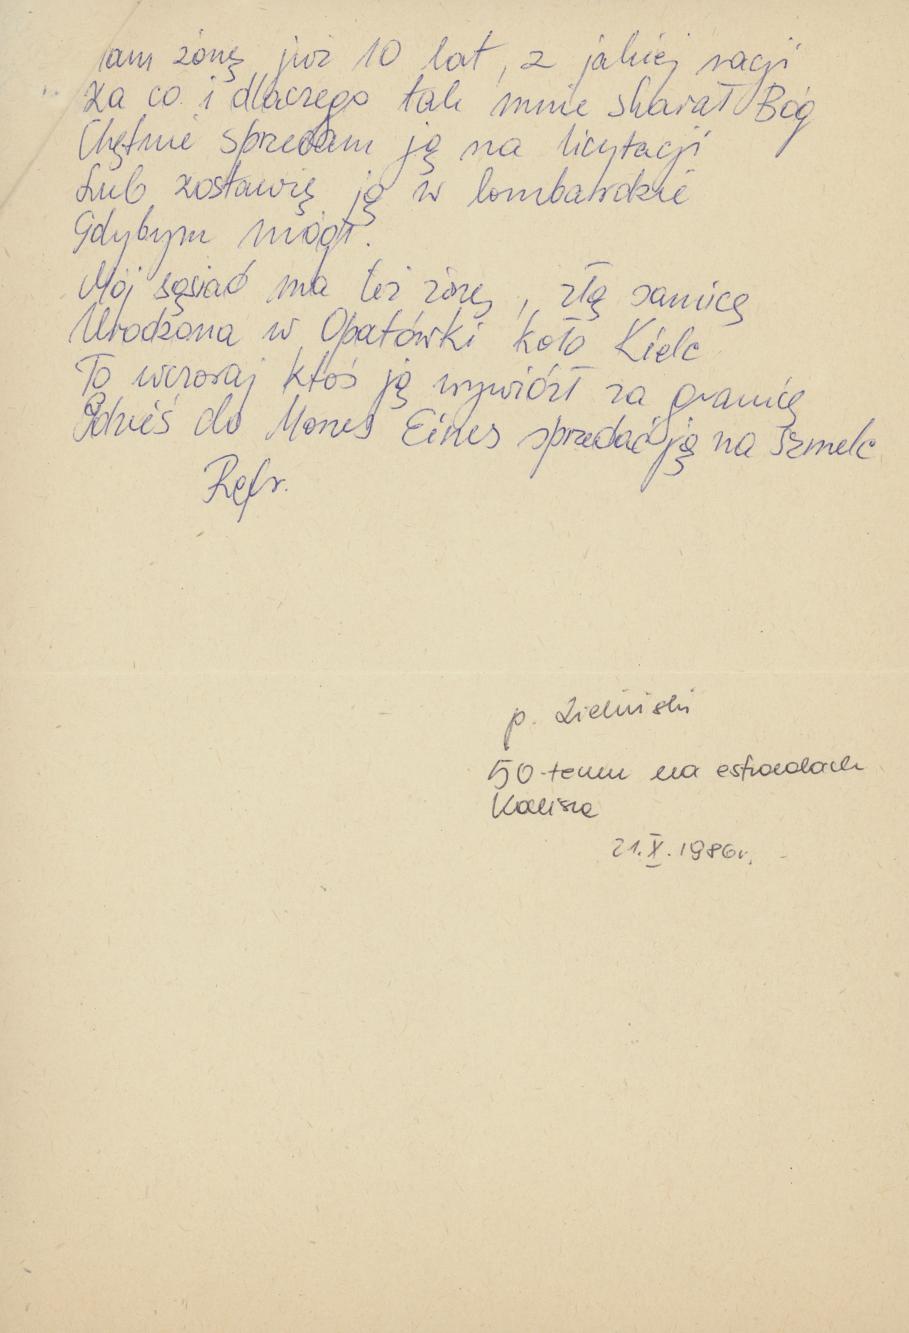 am żonę już 10 lat, z jakiej racji
Za co i dlaczego tak mnie skarał Bóg
Chętnie sprzedam ją na licytacji
Lub zostawię ją w lombardzie
Gdybym mógł.
Mój sąsiad ma też żonę, złą samicę
Urodzona w Opatówki koło Kielc
To wczoraj ktoś ją wywiózł za granicę
Gdzieś do Mones Eines sprzedać ją na szmelc
Refr.
p. Zieliński
50-temu na estradach
Kalisza
21.X.1986r.